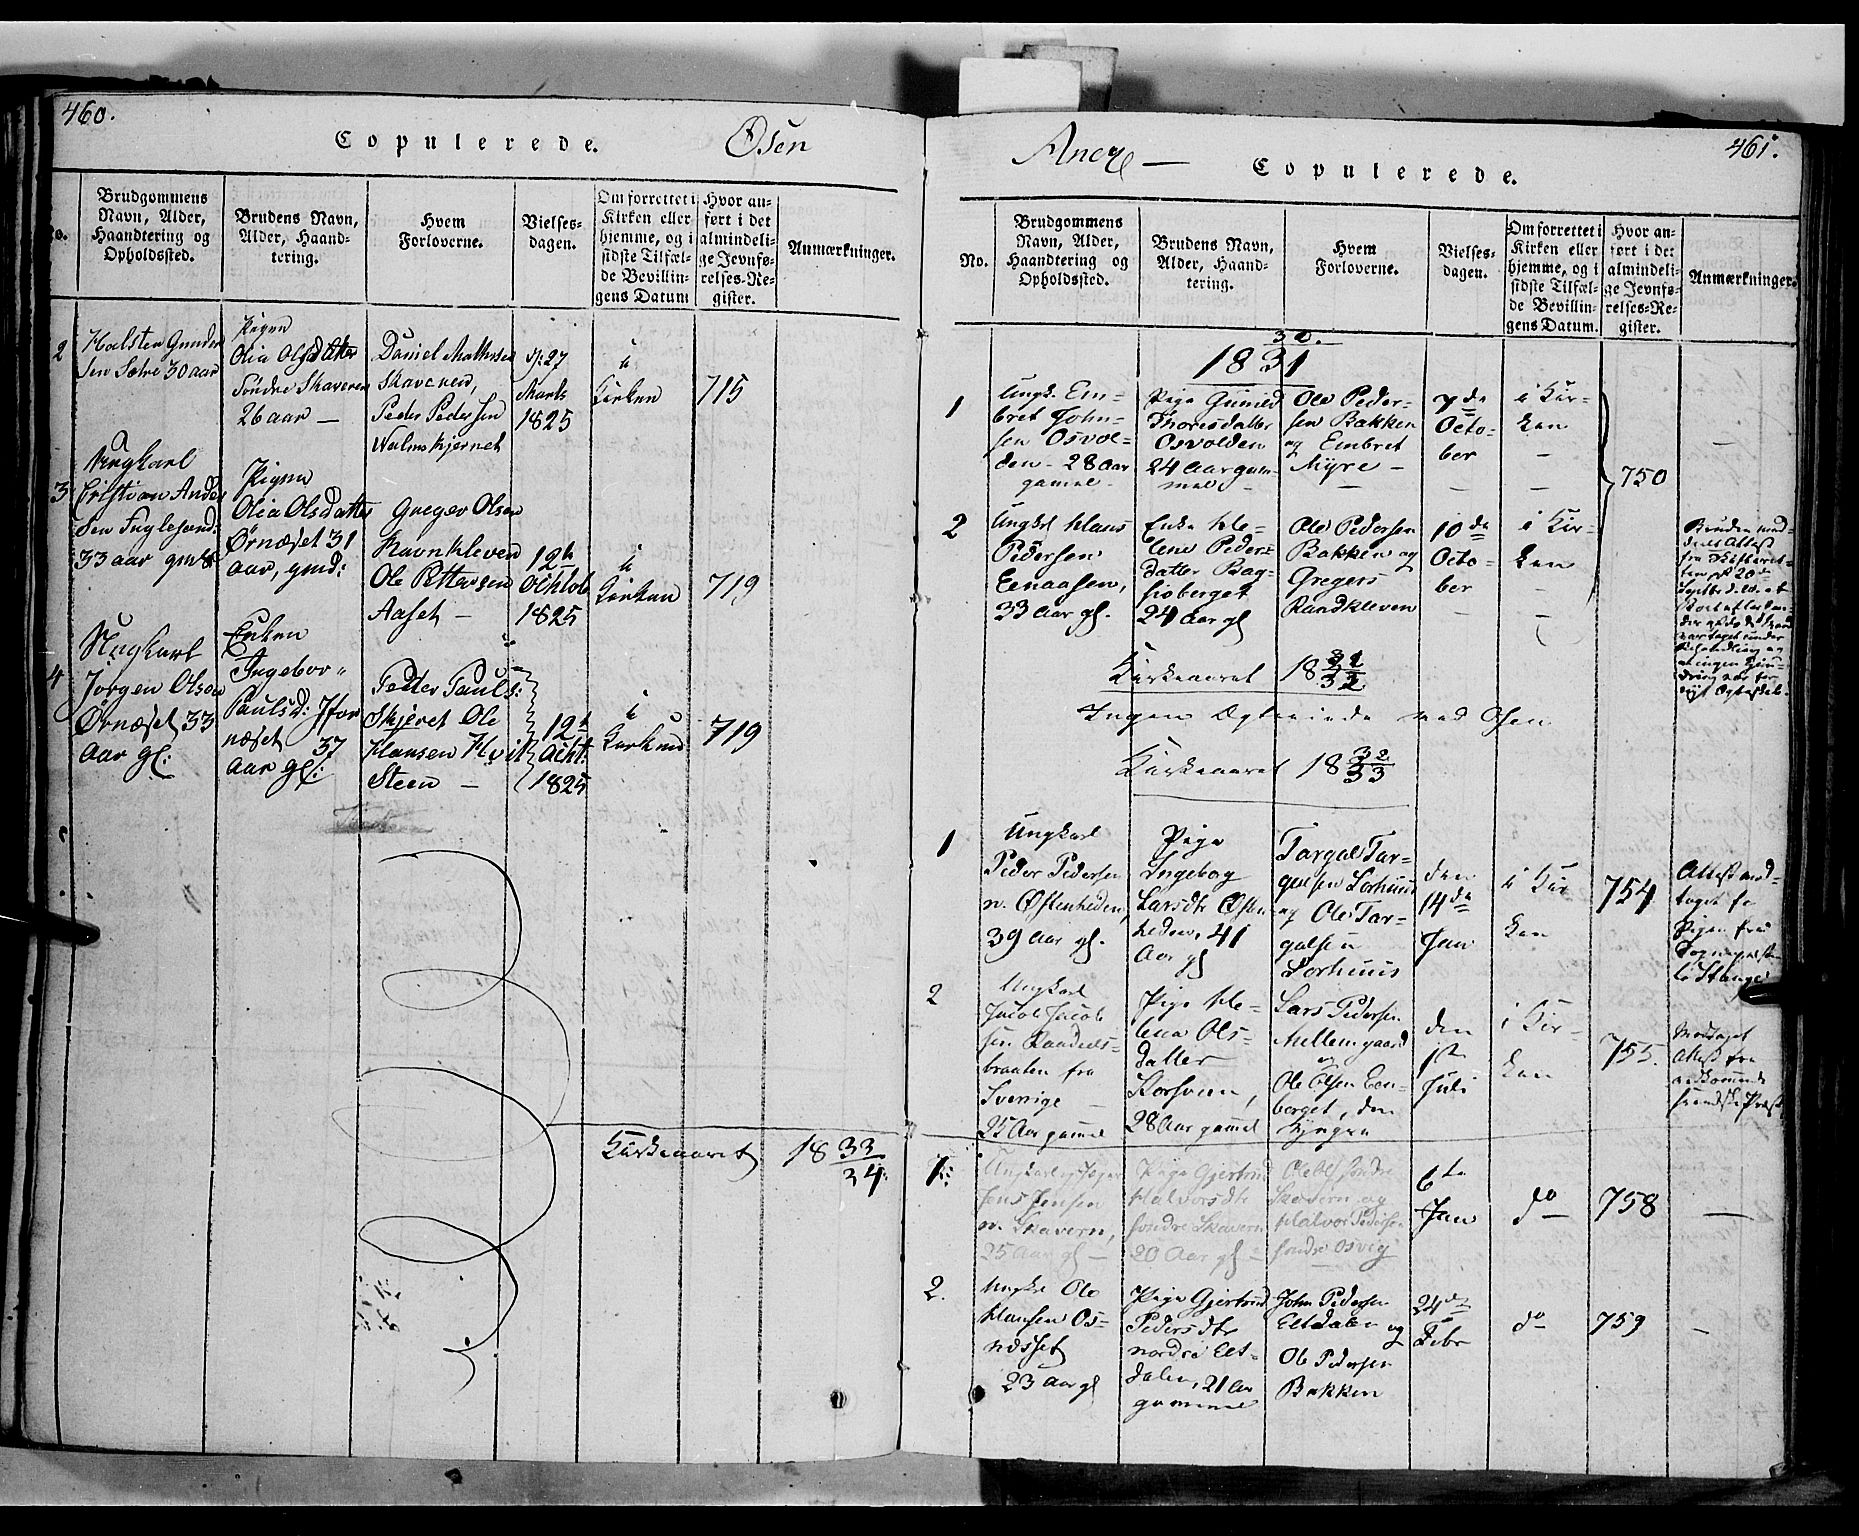 460.
Copulerede.
Osen
No.
Brudgommens
Navn, Alder,
Haandtering og
Opholdssted.
Brudens Navn,
Alder, Haand-
tering.
Hvem
Forloverne.
Vielses-
dagen.
Om forrettet i
Kirken eller
hjemme, og i
sidste Tilfæl-
de Bevillin-
gens Datum
Hvor an-
ført i det
almindeli-
ge Jevnfø-
relses-Re-
gister.
Anmærkninger.
2
Halsten Gunder
sen Sætre 30 aar
Pigen
Olia Olsdatter
Søndre Skaveren
26 aar —
Daniel Mathesen
Skaveren,
Peder Pedersen
Wulmskjernet
27
Marts
1825
i
Kirken
715
3
Ungkarl
Cristian Ander
sen Fuglesand:
33 aar gml
Pigen
Olia Olsdatter
Ørnæset 31
aar, gml:
Greger Olsen
Ravnkleven
Ole Pettersen
Aaset —
12te
Ochtob
1825
i
Kirken
719
4
Ungkarl
Jørgen Olsen
Ørnæset 33
aar gl:
Enken
Ingebor
Paulsd:
næset 37
aar gl:
Peder Pauls:
Skjeret Ole
Hansen Hvit
Steen —
12te
Ocht:
1825
i
Kirken
719
Kirkeaaret 18 33/34.
461.
Copulerede.
No.
Brudgommens
Navn, Alder,
Haandtering og
Opholdssted.
Brudens Navn,
Alder, Haand-
tering.
Hvem
Forloverne.
Vielses-
dagen.
Om forrettet i
Kirken eller
hjemme, og i
sidste Tilfæl-
de Bevillin-
gens Datum.
Hvor an-
ført i det
almindeli-
ge Jevnfø-
relses-Re-
gister.
Anmærkninger.
30.
1831
1
Ungk. Em-
bret John-
sen Osvol-
den 28 aar
gamel
Pige Gunild
Thoresdatter
Osvolden
24 Aar gam-
mel
Ole Peder-
sen Bakken
og Embret
Myre —
7de
Octo-
ber
i Kir-
ken
750
2
Ungkl Hans
Pedersen
Eenaasen,
33 aar gl.
Enke He-
lene Peders
datter Bag-
sioberget
24 aar gl
Ole Pedersen
Bakken og
Gregers
Randkleven
10de
Octo-
ber
i Kir-
ken
Kirkeaaret 18 31/32
Ingen Ægteviede ved Osen
Kirkeaaret 18 32/33
1
Ungkarl
Peder Pedersen
n. Østenheden,
39 aar gl.
Pige
Ingebog
Larsdtr Østen
heden, 41
Aar gl
Targal Tar-
galsen Sorhuus
og Ole Tar-
galsen
Sorhuus
den
14de
Jan
i Kir
ken
754
Attest mod-
taget fo
Pigen fra
Sognepresten
til Stange
2
Ungkarl
Jacob Jacob
sen Raadels-
braaten fra
Sverige —
25 Aar gammel
Pige He-
lena Ols-
datter
Storsveen,
28 Aar gammel
Lars Pedersen
Mellemgaard
og
Ole Olsen Een-
berget, den
Yngre
den
1ste
Juli
i Kir-
ken
755.
Modtaget
Attest fra
vedkommende
svenske Præst
1.
Jens Jensen
n. Skavern,
25 Aar gl —
Pige Gjertrud
Halvorsdtr
søndre Skavern
20 Aar gl —
søndre
Skavern og
Halvor Pedersen
søndre Osvig
6te
Jan
do
758
—
2.
Ungkl Ole
Hansen Os-
næsset
23 aar gl
Pige Gjertrud
Pedersdtr
nordre Elt-
dalen, 21 Aar
gammel
John Pedersen
Eltdalen og
Ole Pedersen
Bakken
24de
Febr
do
759
—